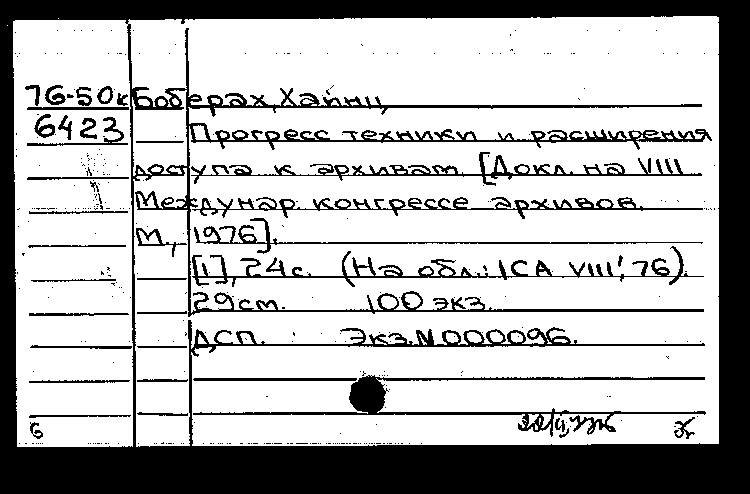 76-50к Боберах, Хайнц
6423 Прогресс техники и расширения
доступа к архивам [Докл. на VIII
Междунар. конгрессе архивов.
М., 1976].
[1], 24с. (На обл.: ICA VIII', 76).
29см. 100 экз.
ДСП. Экз.N000096.
6